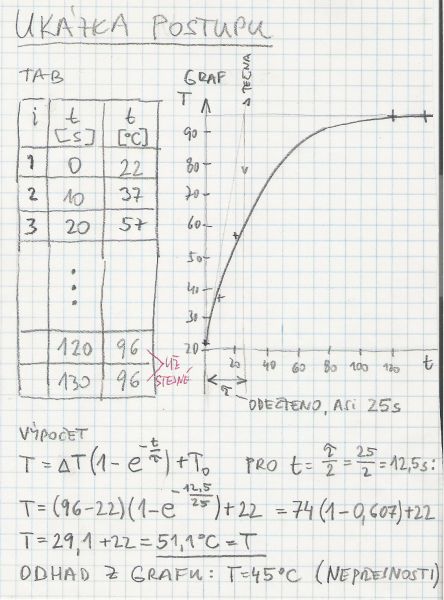 UKÁZKA POSTUPU
TAB
i t [s] t [°C]
1 0 22
2 10 37
3 20 57
120 96
130 96
UŽ
STEJNÉ
GRAF
TEČNA
T
90
80
70
60
50
40
30
20
20 40 60 80 100 120 t
τ
ODEČTENO, ASI 25s
VÝPOČET
T = ΔT(1 - e^(-t/τ)) + T₀ PRO t = τ/2 = 25/2 = 12,5s:
T = (96-22)(1-e^(-12,5/25)) + 22 = 74(1-0,607)+22
T = 29,1 + 22 = 51,1°C = T
ODHAD Z GRAFU: T=45°C (NEPŘESNOSTI)